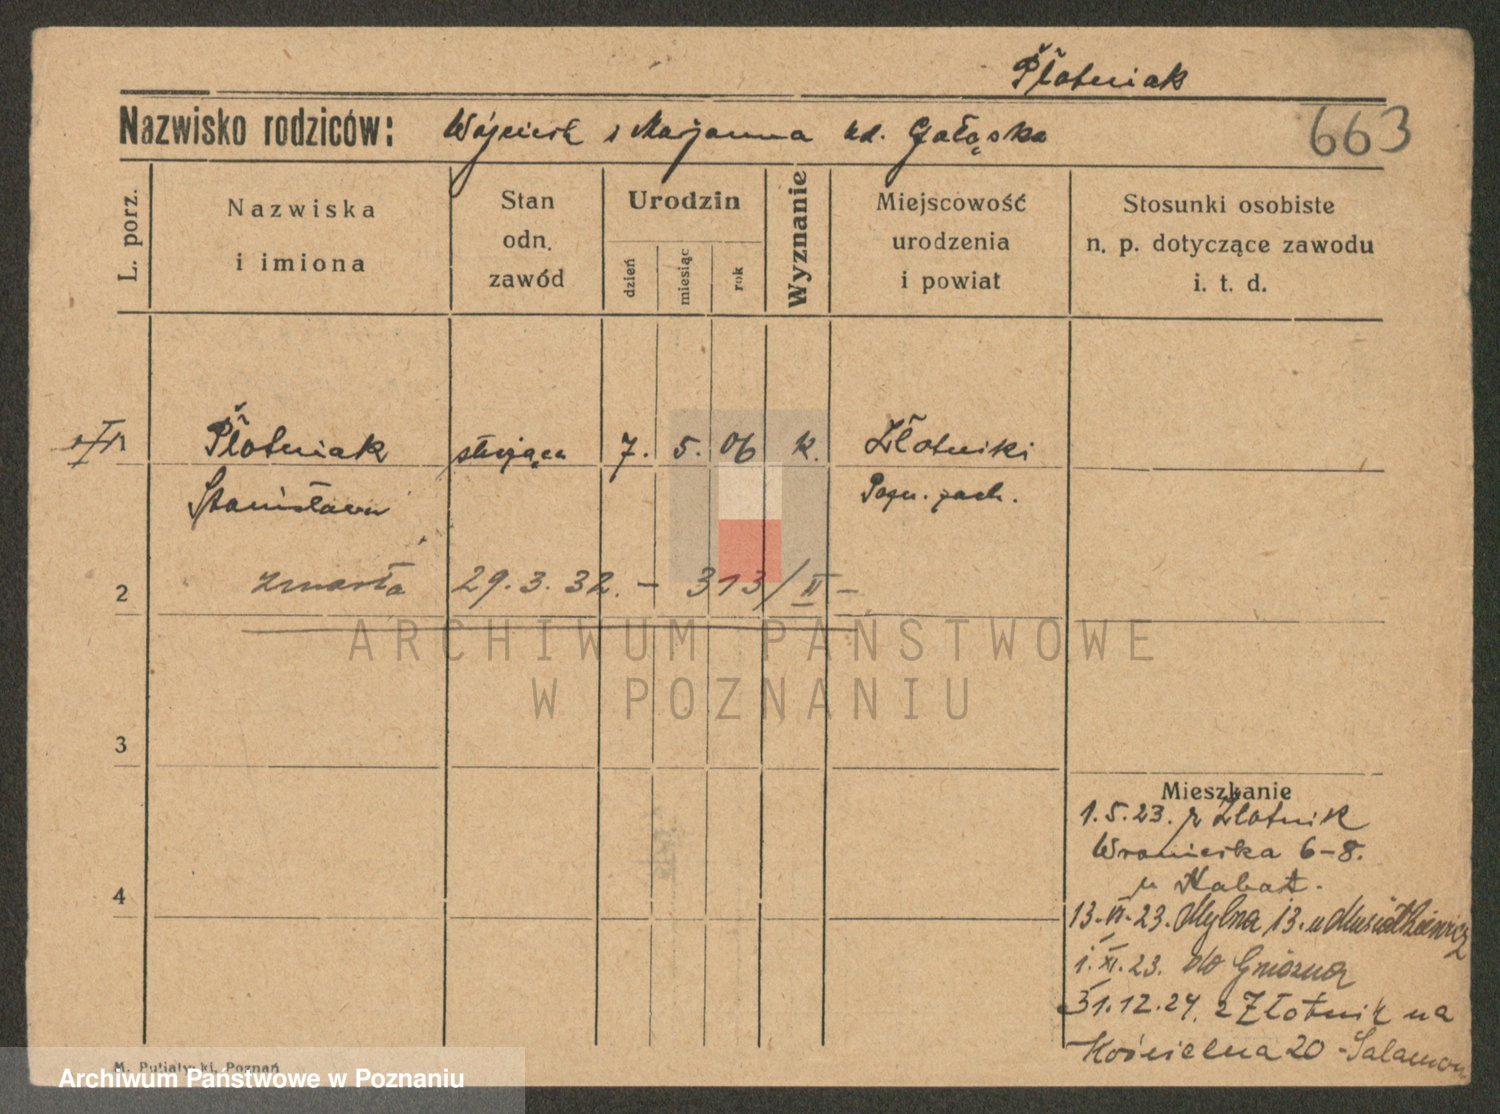 Płotniak
Nazwisko rodziców: Wojciech i Marjanna ud. Gałąska 663
L. porz.
Nazwiska
i imiona
Stan
odn.
zawód
Urodzin
dzień
miesiąc
rok
Wyznanie
Miejscowość
urodzenia
i powiat
Stosunki osobiste
n. p. dotyczące zawodu
i. t. d.
Płotniak służąca 7. 5. 06 k. Złotniki
Stanisława Pozn. zach.
2 zmarła 29.3.32. – 313/II –
ARCHIWUM PAŃSTWOWE
W POZNANIU
3
Mieszkanie
1.5.23. z Złotnik
Wroniecka 6–8.
4 u
13.VI.23. Młyna 13. u Musiałkiewicz
1.XI.23. do Gniezna
31.12.24. z Złotnik na
Kościelna 20 -
M. Putiatycki, Poznań
Archiwum Państwowe w Poznaniu